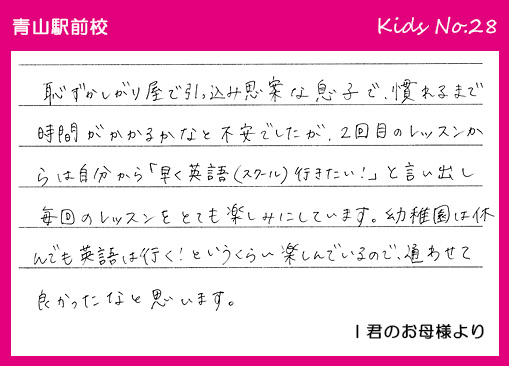 青山駅前校
Kids No.28
恥ずかしがり屋で引っ込み思案な息子で、慣れるまで
時間がかかるかなと不安でしたが、2回目のレッスンか
らは自分から「早く英語（スクール）行きたい！」と言い出し
毎回のレッスンをとても楽しみにしています。幼稚園は休
んでも英語は行く！というくらい楽しんでいるので、通わせて
良かったなと思います。
I 君のお母様より